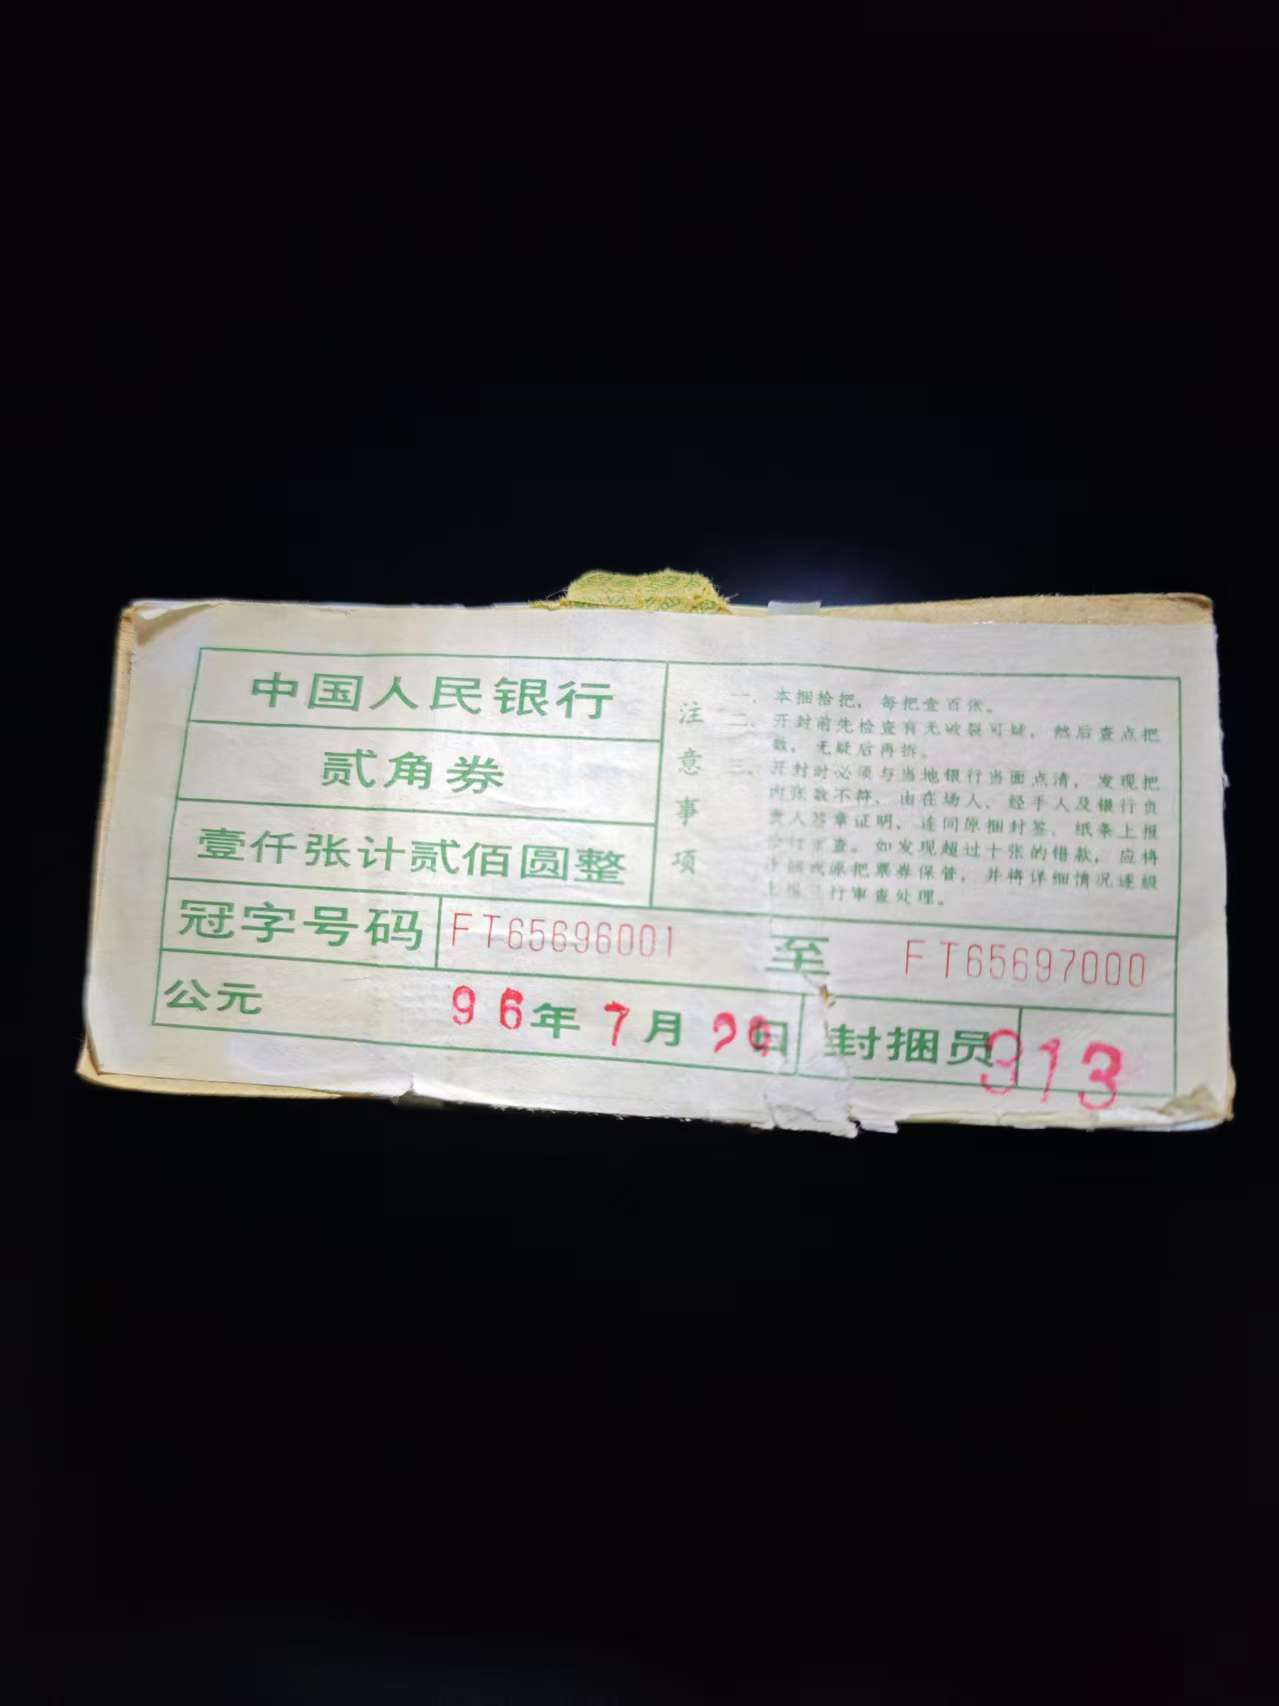 中国人民银行
贰角券
壹仟张计贰佰圆整
注意事项
一、本捆拾把，每把壹百张。
二、开封前先检查有无破裂可疑，然后查点把
数，无疑后再拆。
三、开封时必须与当地银行当面点清，发现把
内张数不符，由在场人、经手人及银行负
责人签章证明，连同原捆封签、纸条上报
审查。如发现超过十张的错款，应将
原把票券保管，并将详细情况逐级
行审查处理。
冠字号码 FT65696001 至 FT65697000
公元 96年7月 日 封捆员 913